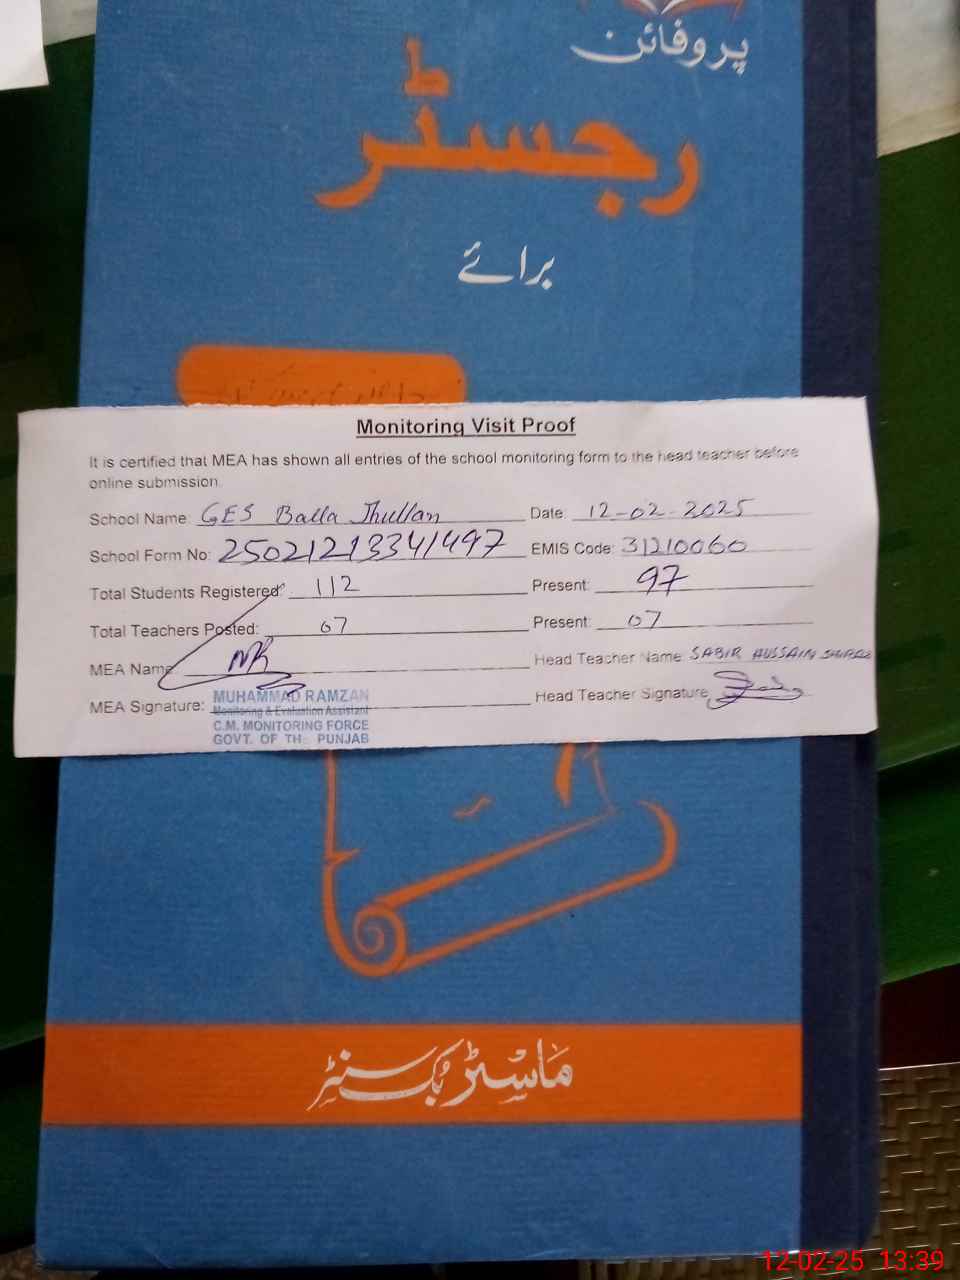 پروفائن
رجسٹر
برائے
Monitoring Visit Proof
It is certified that MEA has shown all entries of the school monitoring form to the head teacher before
online submission.
School Name: GES Balla Jhullan Date: 12-02-2025
School Form No: 25021213341497 EMIS Code: 31210060
Total Students Registered: 112 Present: 97
Total Teachers Posted: 07 Present: 07
MEA Name: MR Head Teacher Name: SABIR HUSSAIN
MEA Signature: Head Teacher Signature
MUHAMMAD RAMZAN
Monitoring & Evaluation Assistant
C.M. MONITORING FORCE
GOVT. OF THE PUNJAB
ماسٹر بک سنٹر
12-02-25 13:39